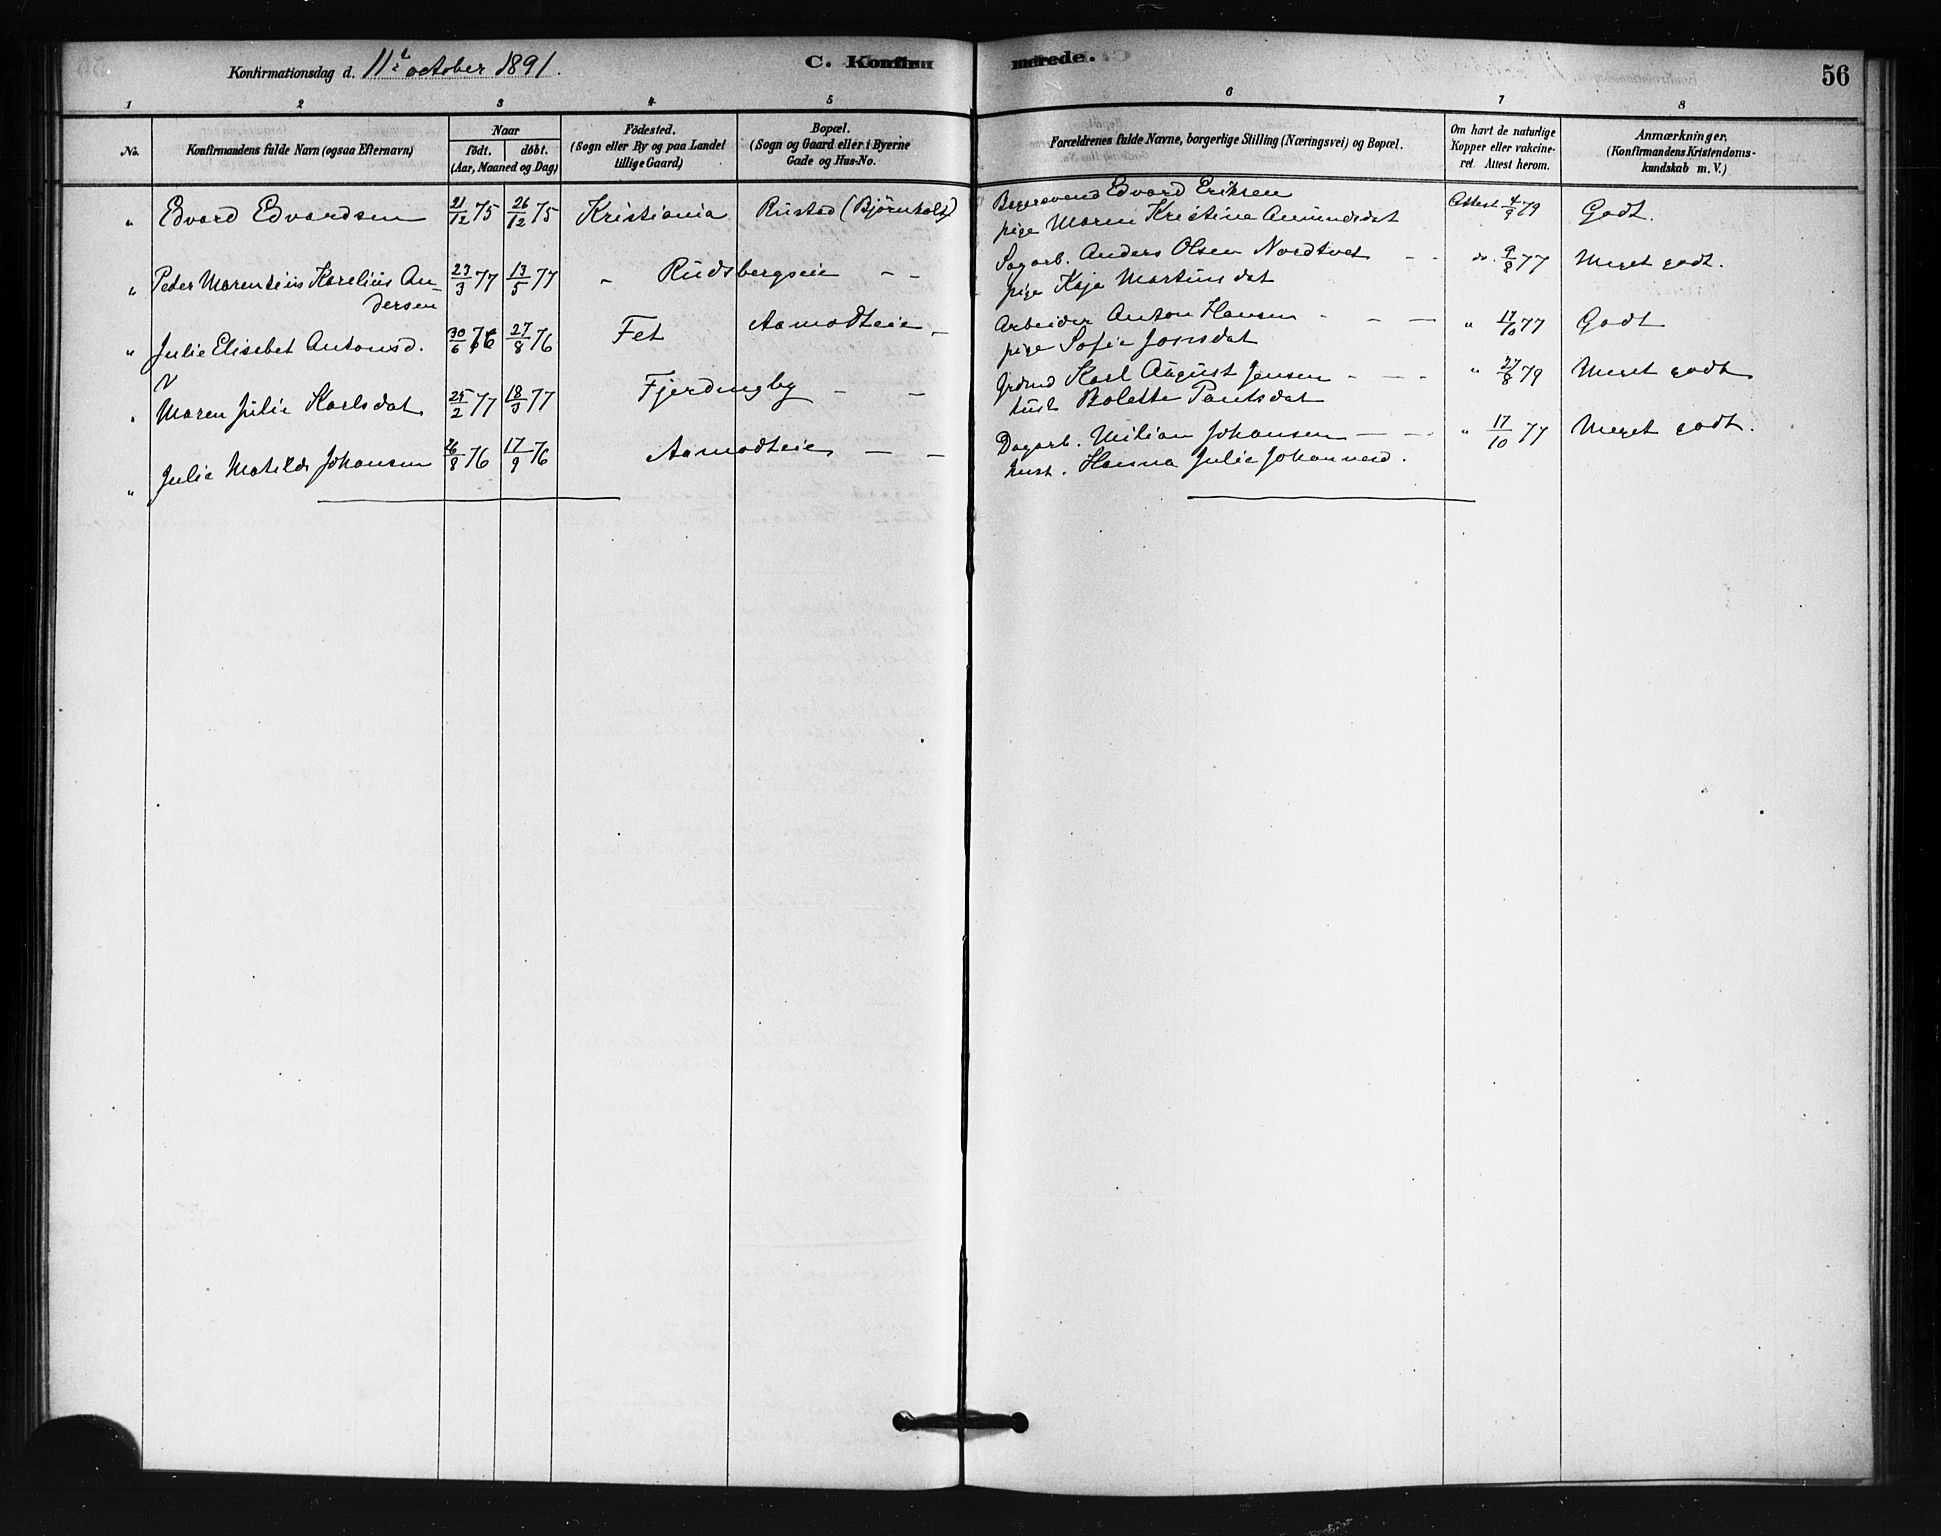 Konfirmationsdag d. 11te october 1891.
C. Konfirmerede.
56
1 2 3 4 5 6 7 8
No.
Konfirmandens fulde Navn (ogsaa Efternavn)
Naar
født. døbt.
(Aar, Maaned og Dag)
Födested.
(Sogn eller By og paa Landet
tillige Gaard)
Bopæl.
(Sogn og Gaard eller i Byerne
Gade og Hus-No.
Forældrenes fulde Navne, borgerlige Stilling (Næringsvei) og Bopæl.
Om havt de naturlige
Kopper eller vakcine-
ret. Attest herom.
Anmærkninger,
(Konfirmandens Kristendoms-
kundskab m. V.)
" Edvard Edvardsen 21/12 75 26/12 75 Kristiania Rustad (Bjørnholt) Edvard Eriksen Attest 4/9 79 Godt.
pige Maren Kristine Amundsdat
" Peter Marentius Karelius An- 23/3 77 13/5 77 " Rudsbergseie — — Sagarb. Anders Olsen Nordtvet - - do. 9/8 77 Meget godt.
dersen pige Kaja Martinsdat
" Julie Elisebet Antonsd. 30/6 76 27/8 76 Fet Aamodteie — Arbeider Anton Hansen - — — " 17/10 77 Godt
pige Sofie Jonsdat
V
" Maren Julie Karlsdat 25/2 77 18/3 77 Fjerdingby — — Karl August Jensen - - - " 27/8 79 Meget godt
hust Bolette Paulsdat
" Julie Matilde Johansen 26/8 76 17/9 76 Aamodteie — — Dagarb. Milian Johansen — — " 17/10 77 Meget godt.
hust. Hanna Julie Johannesd.